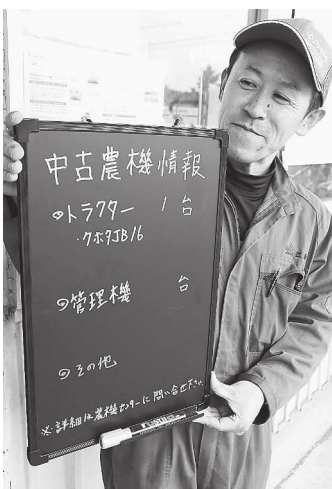 中古農機情報
◎トラクター 1台
・クボタJB16
◎管理機 台
◎その他
※詳細は農機センターに問い合せ下さい